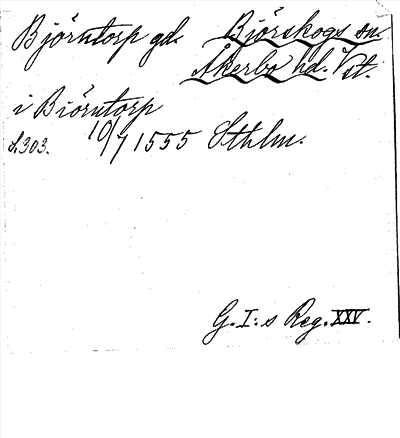 Björntorp gd. Björskogs sn.
Åkerbo hd. Vst.
i Biörntorp
s. 303. 10/7 1555 Sthlm.
G. I:s Reg. XXV.